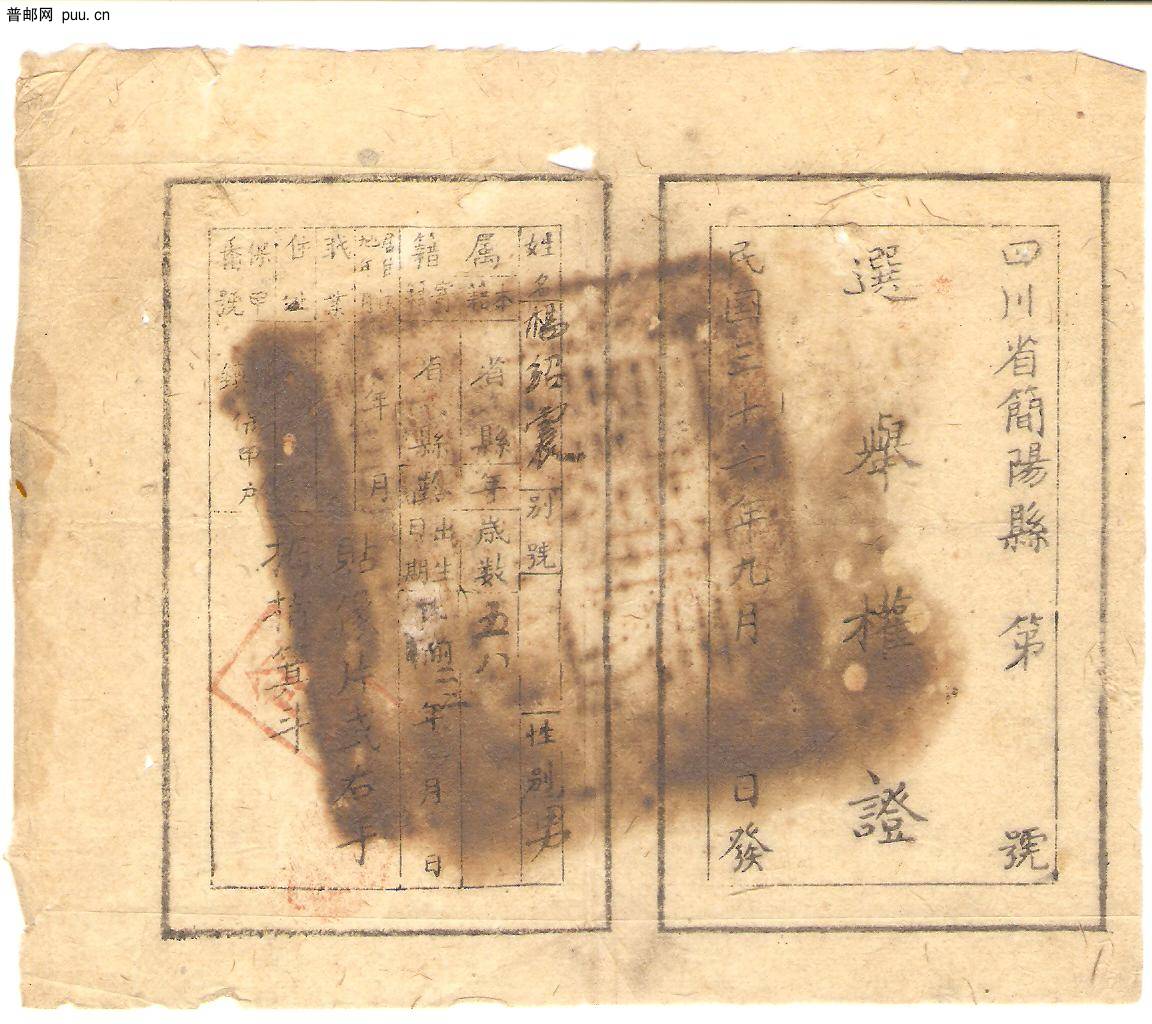 普邮网 puu.cn
四川省簡陽縣 第 號
選舉權證
民国三十六年九月 日發
姓名 楊紹 別號 性別 男
属 本籍 省 縣 年 歲数 五八
籍 寄籍 省 縣 齡 出生日期 年 月 日
年 月
我業 貼像片或右手
住址 拇指箕斗
保甲番號 保甲户